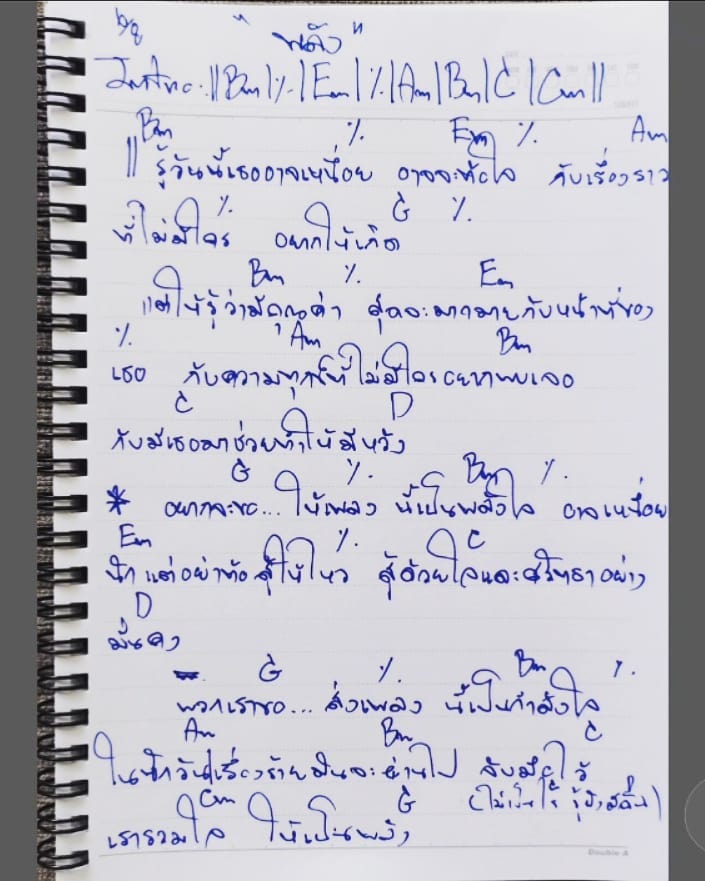 6/8 "พลัง"
Intro: || Bm | ٪ | Em | ٪ | Am | Bm | C | Cm ||
Bm ٪ Em ٪ Am
|| รู้วันนี้เธออาจเหนื่อย อาจจะท้อใจ กับเรื่องราว
٪ G ٪
ที่ไม่มีใคร อยากให้เกิด
Bm ٪ Em
แต่ให้รู้ว่ามีคุณค่า สุดจะมากมายกับหน้าที่ของ
٪ Am Bm
เธอ กับความทุกข์ที่ไม่มีใครอยากพบเจอ
C D
กับมีเธอมาช่วยทำให้มีหวัง
G ٪ Bm ٪
* อยากจะขอ... ให้เพลง นี้เป็นพลังใจ อาจเหนื่อย
Em ٪ C
นัก แต่อย่าท้อ สู้ให้ไหว สู้ด้วยใจและศรัทธาอย่าง
D
มั่นคง
G ٪ Bm ٪
พวกเราขอ... ส่งเพลง นี้เป็นกำลังใจ
Am Bm C
ในทุกวันเรื่องร้ายมันจะผ่านไป จับมือไว้
Cm G
เรารวมใจ ให้เป็นพลัง
Double A